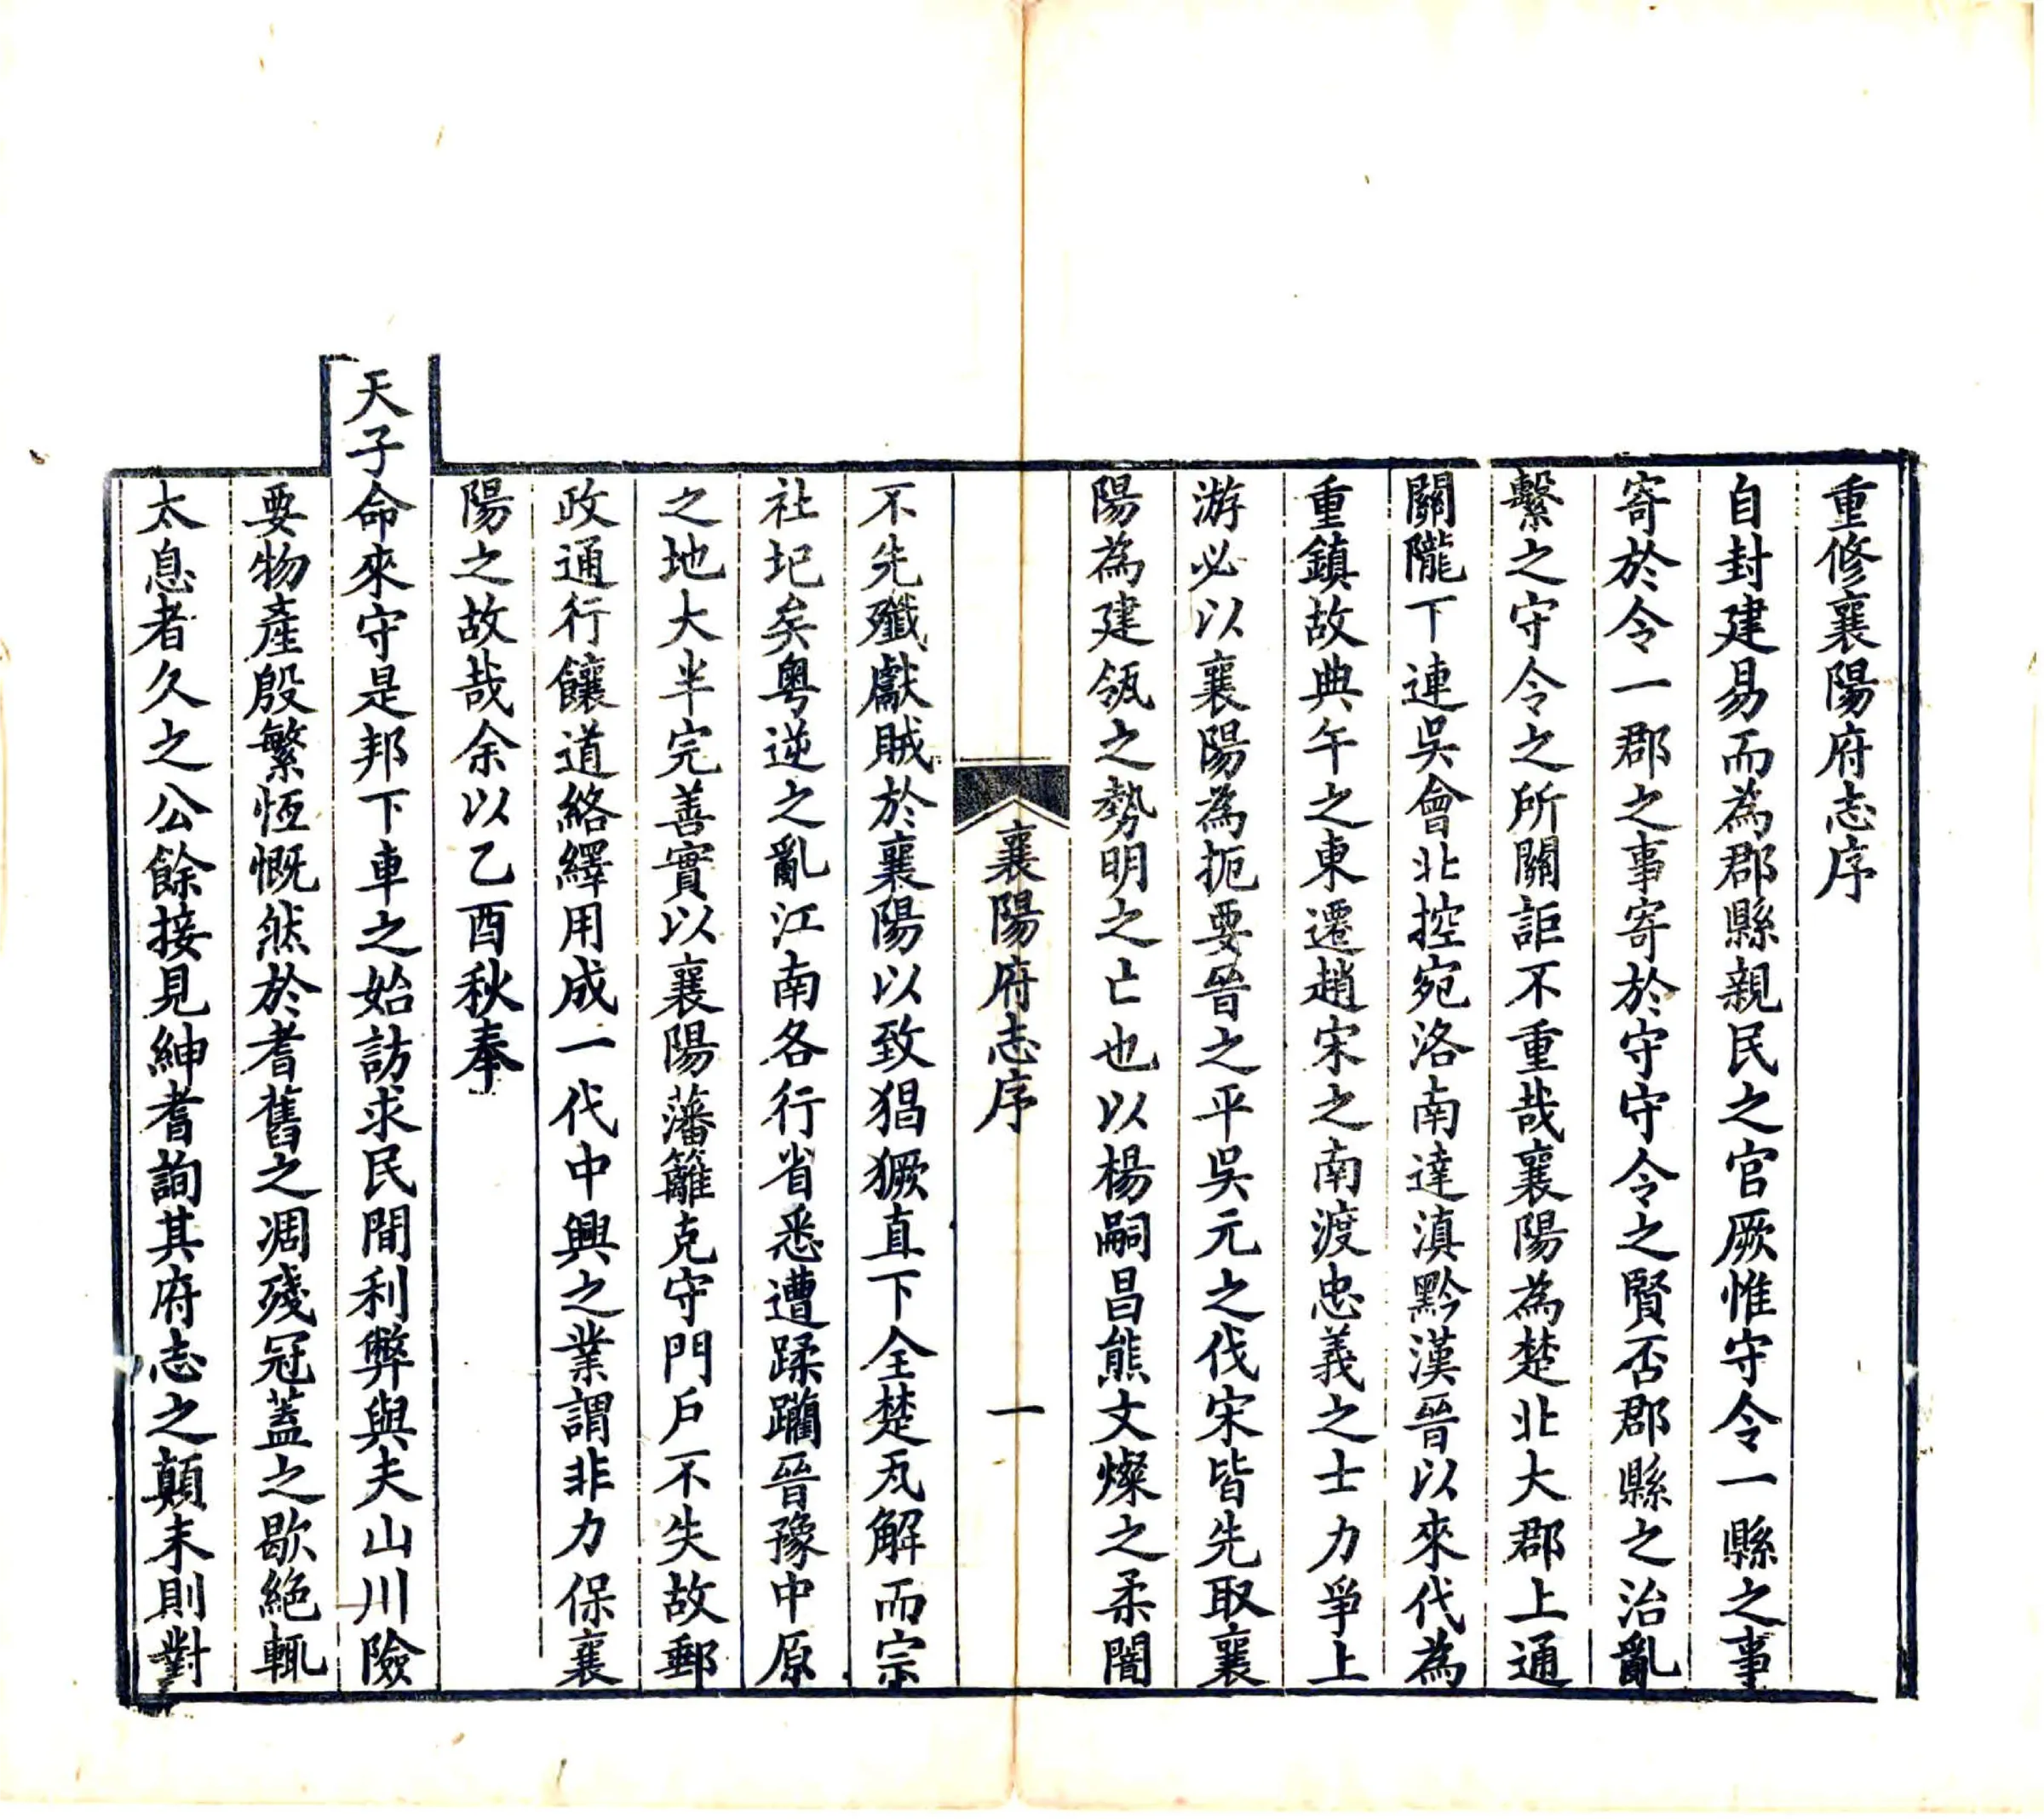 重修襄陽府志序
自封建易而為郡縣親民之官厥惟守令一縣之事
寄於令一郡之事寄於守守令之賢否郡縣之治亂
繫之守令之所關詎不重哉襄陽為楚北大郡上通
關隴下連吳會北控宛洛南達滇黔漢晉以來代為
重鎮故典午之東遷趙宋之南渡忠義之士力爭上
游必以襄陽為扼要晉之平吳元之伐宋皆先取襄
陽為建瓴之勢明之亡也以楊嗣昌熊文燦之柔闇
襄陽府志序
一
不先殲獻賊於襄陽以致猖獗直下全楚瓦解而宗
社圮矣粵逆之亂江南各行省悉遭蹂躪晉豫中原
之地大半完善實以襄陽藩籬克守門戶不失故郵
政通行饟道絡繹用成一代中興之業謂非力保襄
陽之故哉余以乙酉秋奉
天子命來守是邦下車之始訪求民間利弊與夫山川險
要物產殷繁恆慨然於耆舊之凋殘冠蓋之歇絕輒
太息者久之公餘接見紳耆詢其府志之顛末則對